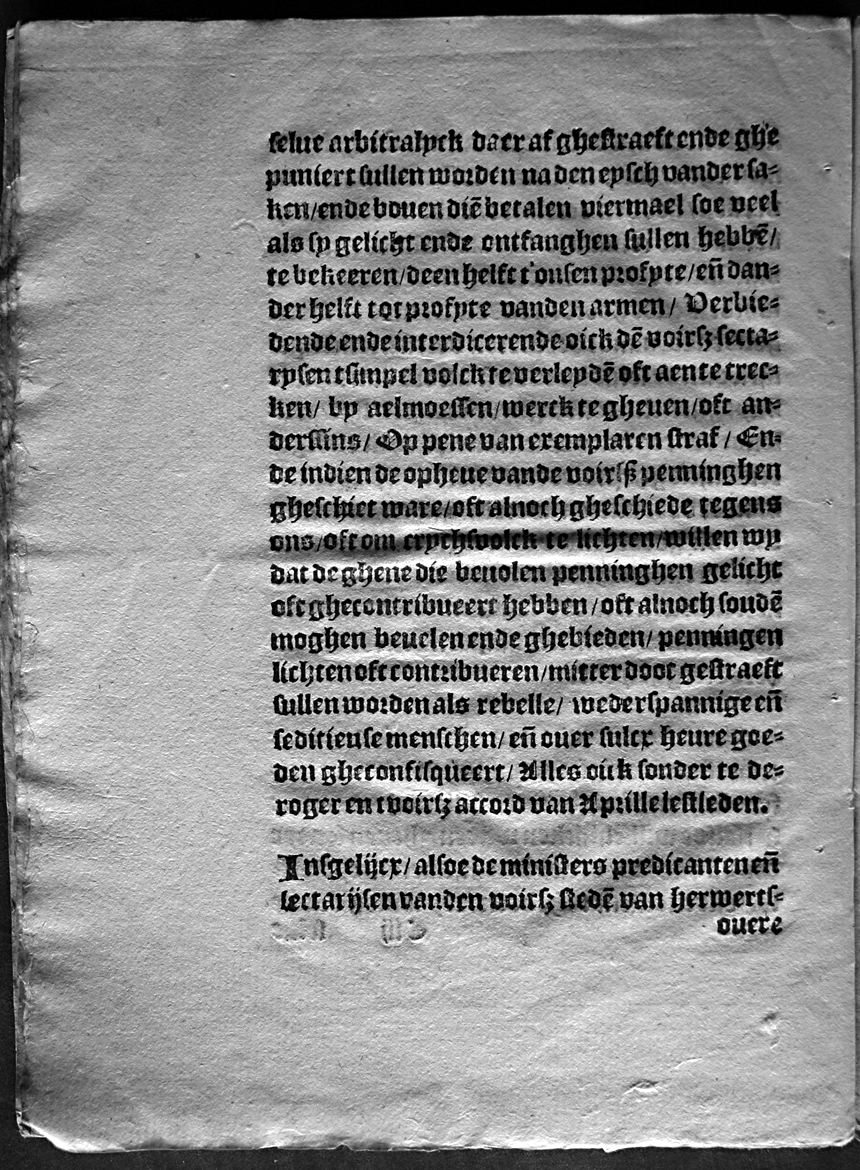 selue arbitralyck daer af ghestraeft ende ghe
puniert sullen worden na den eysch vander sa⸗
ken/ende bouen diē betalen viermael soe veel
als sy gelicht ende ontfanghen sullen hebbē/
te bekeeren/deen helft t'onsen profyte/eñ dan⸗
der helft tot profyte vanden armen/ Verbie⸗
dende ende interdicerende oick dē voirsz secta⸗
rysen tsimpel volck te verleydē oft aen te trec⸗
ken/ by aelmoessen/werck te gheuen/oft an⸗
derssins/ Op pene van exemplaren straf/ En⸗
de indien de opheue vande voirsz penninghen
gheschiet ware/oft alnoch gheschiede tegens
ons/oft om crychsvolck te lichten/willen wy
dat de ghene die beuolen penninghen gelicht
oft ghecontribueert hebben/oft alnoch soudē
moghen beuelen ende ghebieden/ penningen
lichten oft contribueren/mitter doot gestraeft
sullen worden als rebelle/ wederspannige eñ
seditieuse menschen/ eñ ouer sulcx heure goe⸗
den gheconfisqueert/ Alles oick sonder te de⸗
rogeren tvoirsz accord van Aprille lestleden.
Insgelijcx/ alsoe de ministers predicanten eñ
sectarijsen vanden voirsz stedē van herwerts⸗
ouere